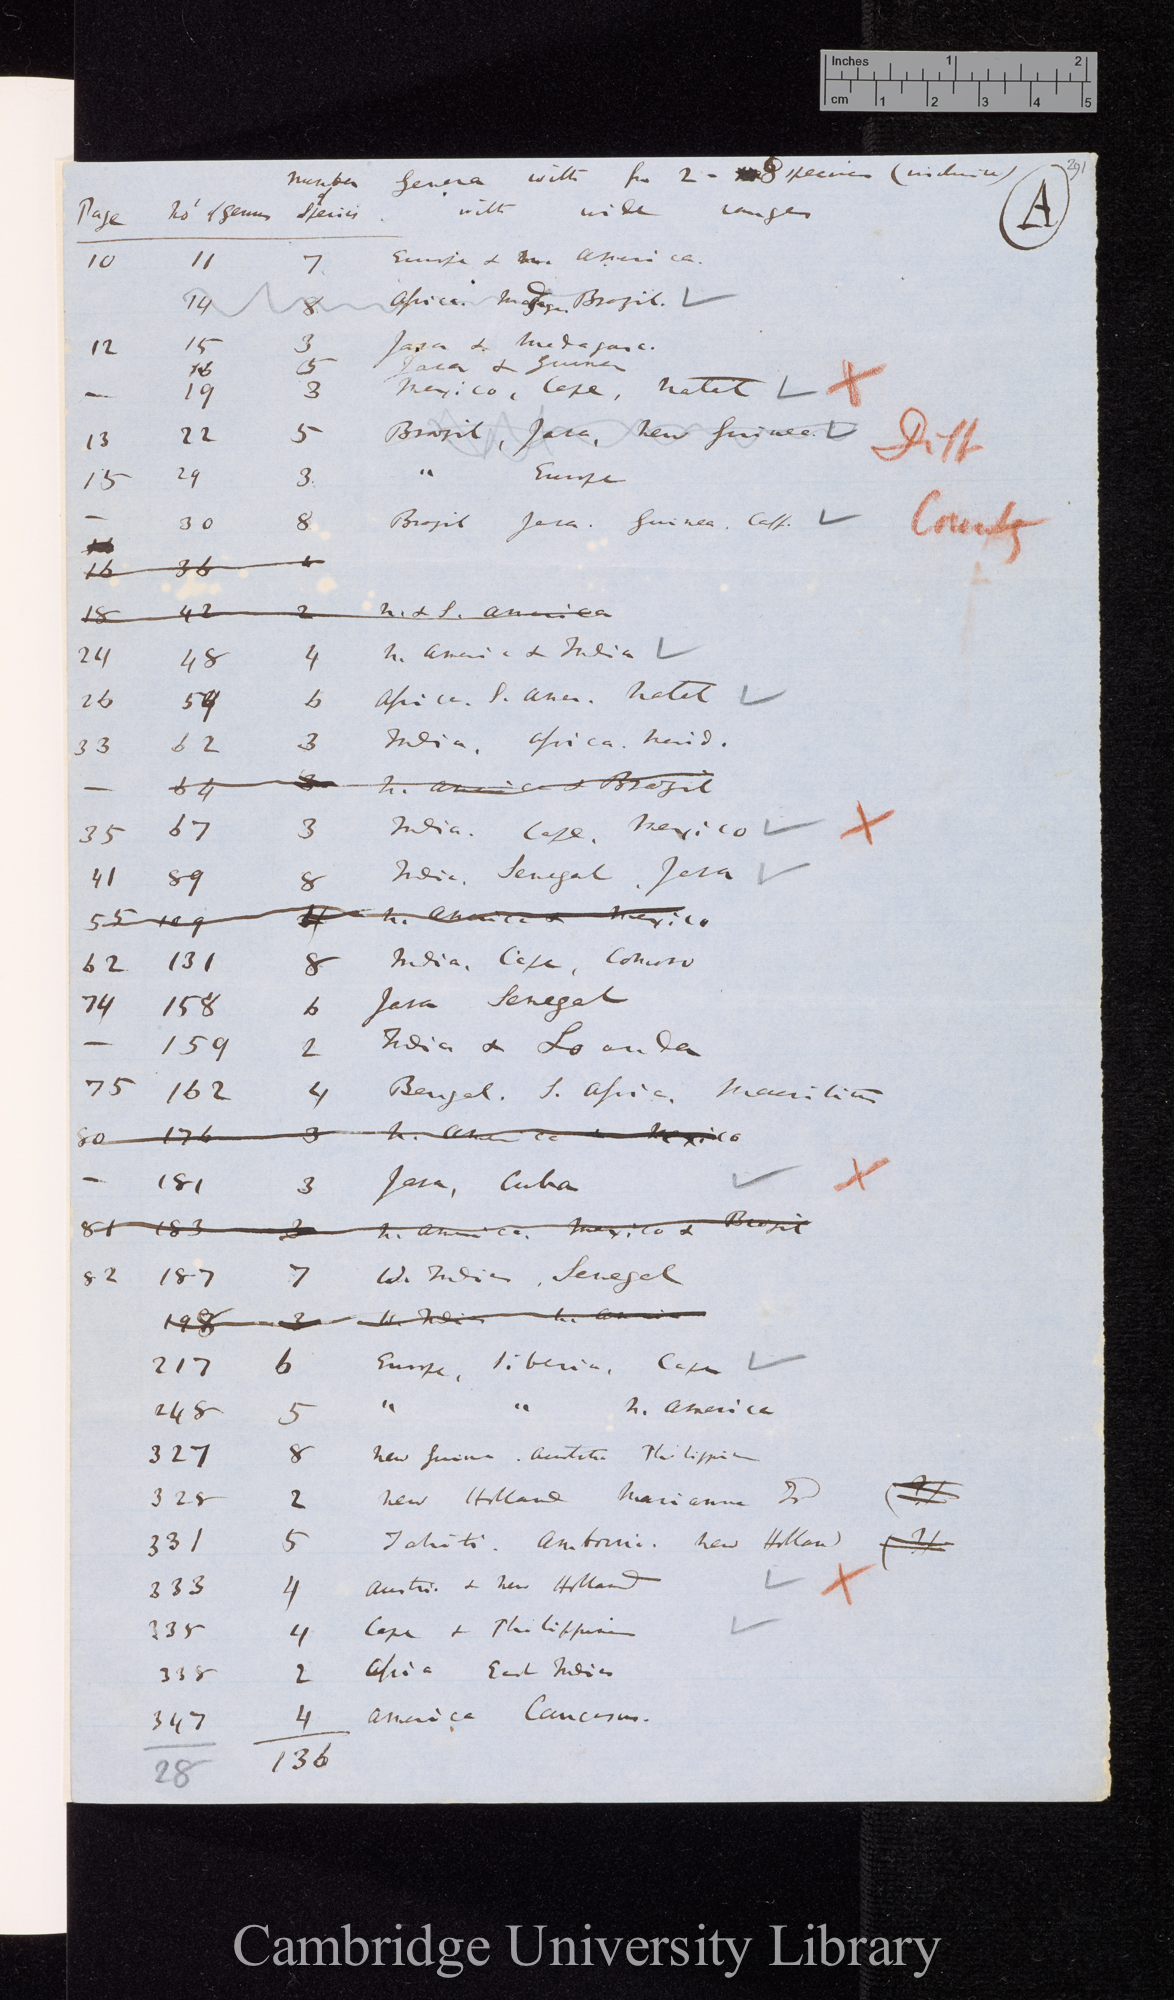 Inches 1 2
cm 1 2 3 4 5
291
A
number Genera with fr 2 - 8 species (inclusive)
Page No' of genus of Species. with wide ranges
10 11 7 Europe & N. America.
14 8 Africa. Madag. Brazil.
12 15 3 Java & Madagasc.
16 5 Java & Guinea
— 19 3 Mexico, Cape, Natal
13 22 5 Brazil, Java, New Guinea.
Diff
15 29 3. " Europe
— 30 8 Brazil Java. Guinea. Caff.
County
16 36 4
18 42 2 N. & S. America
24 48 4 N. America & India
26 54 6 Africa. S. Amer. Natal
33 62 3 India, Africa.
— 64 3 N. America & Brazil
35 67 3 India. Cape. Mexico
41 89 8 India. Senegal. Java
55 109 4 N. America & Mexico
62 131 8 India, Cape, Comoro
74 158 6 Java Senegal
— 159 2 India & Loanda
75 162 4 Bengal. S. Africa. Mauritius
80 176 3 N. America Mexico
— 181 3 Java, Cuba
81 183 3 N. America. Mexico & Brazil
82 187 7 W. Indies, Senegal
198 3 W. Indies N. America
217 6 Europe, Siberia, Cape
248 5 " " N. America
327 8 New Guinea. Philippines
328 2 New Holland Marianna Is
331 5 Tahiti. Amboina. New Holland
333 4 Austr. & New Holland
335 4 Cape & Philippines
338 2 Africa East Indies
347 4 America Caucasus.
28 136
Cambridge University Library